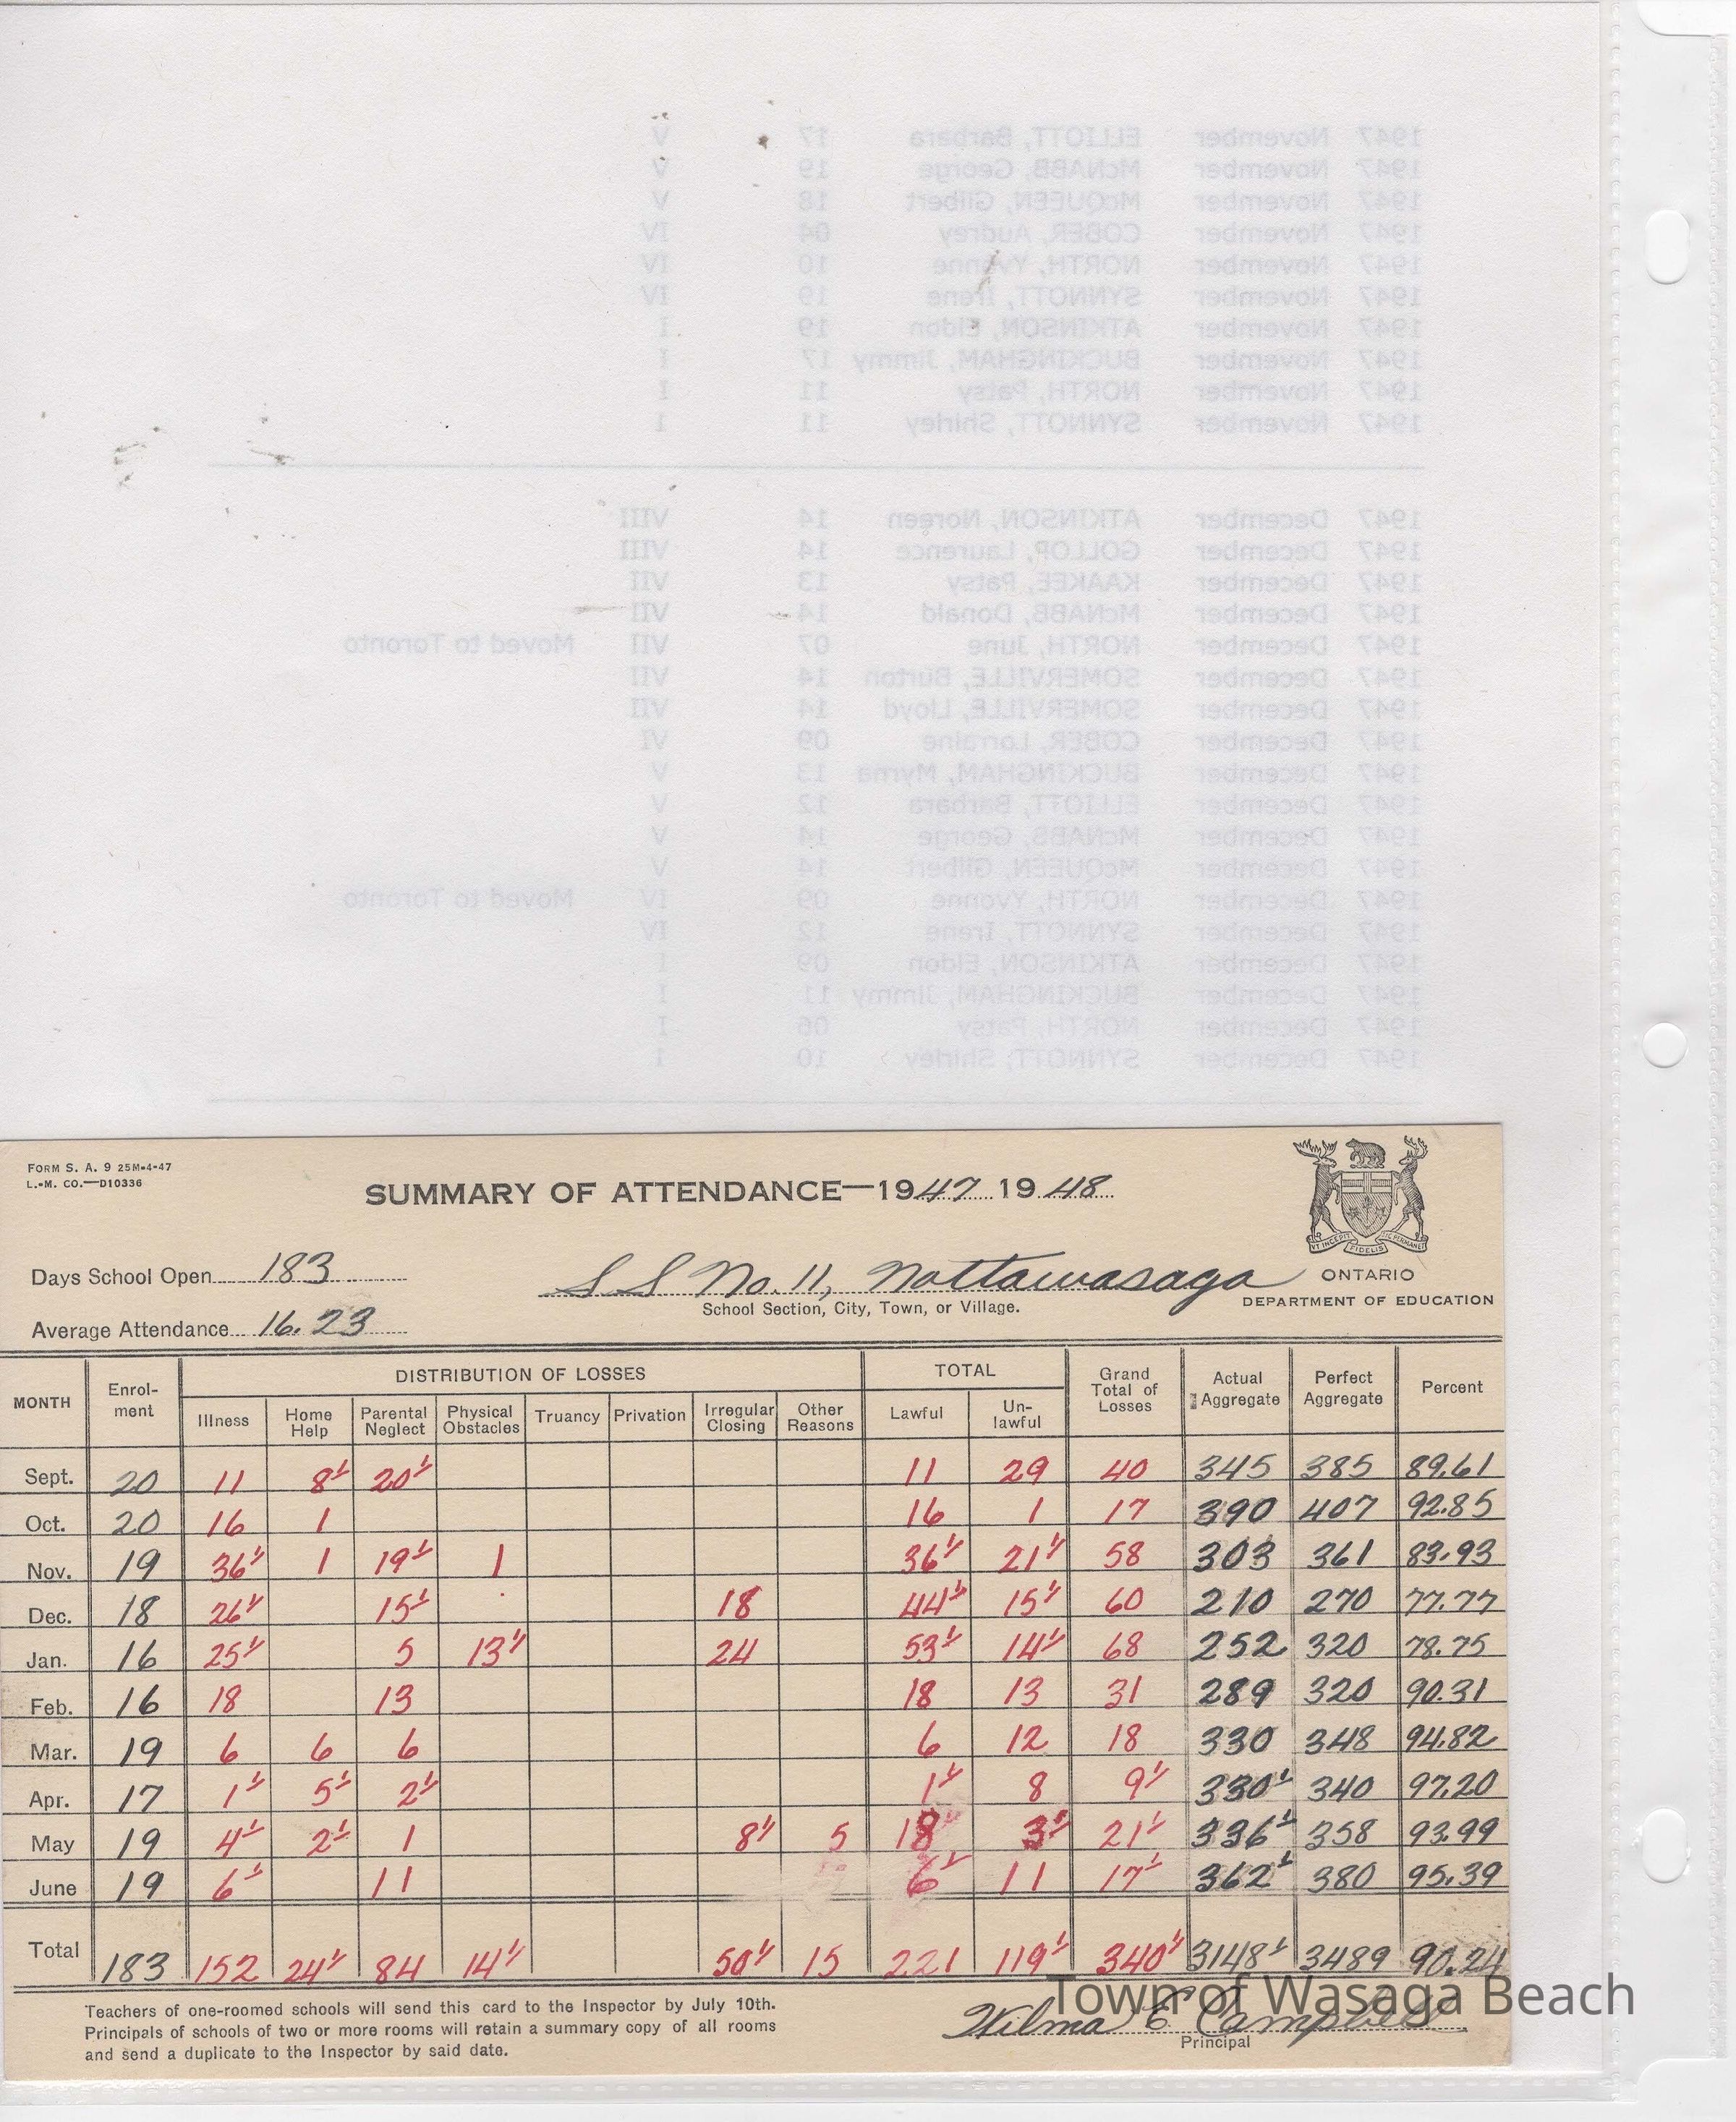 1947 November ELLIOTT, Barbara 17 V
1947 November McNABB, George 19 V
1947 November McQUEEN, Gilbert 18 V
1947 November COBER, Audrey 04 IV
1947 November NORTH, Yvonne 10 IV
1947 November SYNNOTT, Irene 19 IV
1947 November ATKINSON, Eldon 19 I
1947 November BUCKINGHAM, Jimmy 17 I
1947 November NORTH, Patsy 11 I
1947 November SYNNOTT, Shirley 11 1
1947 December ATKINSON, Noreen 14 VIII
1947 December GOLLOP, Laurence 14 VIII
1947 December KAAKEE, Patsy 13 VII
1947 December McNABB, Donald 14 VII
1947 December NORTH, June 07 VII Moved to Toronto
1947 December SOMERVILLE, Burton 14 VII
1947 December SOMERVILLE, Lloyd 14 VII
1947 December COBER, Lorraine 09 VI
1947 December BUCKINGHAM, Myrna 13 V
1947 December ELLIOTT, Barbara 12 V
1947 December McNABB, George 14 V
1947 December McQUEEN, Gilbert 14 V
1947 December NORTH, Yvonne 09 IV Moved to Toronto
1947 December SYNNOTT, Irene 12 IV
1947 December ATKINSON, Eldon 09 I
1947 December BUCKINGHAM, Jimmy 11 I
1947 December NORTH, Patsy 06 I
1947 December SYNNOTT, Shirley 10 1
FORM S. A. 9 25M-4-47
L.-M. CO.—D10336
SUMMARY OF ATTENDANCE—1947 1948
VT INCEPIT FIDELIS SIC PERMANET
Days School Open 183
S S No. 11, Nottawasaga
ONTARIO
School Section, City, Town, or Village.
DEPARTMENT OF EDUCATION
Average Attendance 16.23
MONTH Enrol-ment DISTRIBUTION OF LOSSES TOTAL Grand Total of Losses Actual Aggregate Perfect Aggregate Percent
Illness Home Help Parental Neglect Physical Obstacles Truancy Privation Irregular Closing Other Reasons Lawful Un-lawful
Sept. 20 11 8½ 20½ 11 29 40 345 385 89.61
Oct. 20 16 1 16 1 17 390 407 92.85
Nov. 19 36½ 1 19½ 1 36½ 21½ 58 303 361 83.93
Dec. 18 26½ 15½ 18 44½ 15½ 60 210 270 77.77
Jan. 16 25½ 5 13½ 24 53½ 14½ 68 252 320 78.75
Feb. 16 18 13 18 13 31 289 320 90.31
Mar. 19 6 6 6 6 12 18 330 348 94.82
Apr. 17 1½ 5½ 2½ 1½ 8 9½ 330½ 340 97.20
May 19 4½ 2½ 1 8½ 5 18 3½ 21½ 336½ 358 93.99
June 19 6½ 11 6½ 11 17½ 362½ 380 95.39
Total 183 152 24½ 84 14½ 50½ 15 221 119½ 340½ 3148½ 3489 90.24
Teachers of one-roomed schools will send this card to the Inspector by July 10th.
Principals of schools of two or more rooms will retain a summary copy of all rooms
and send a duplicate to the Inspector by said date.
Town of Wasaga Beach
Wilma E. Campbell
Principal